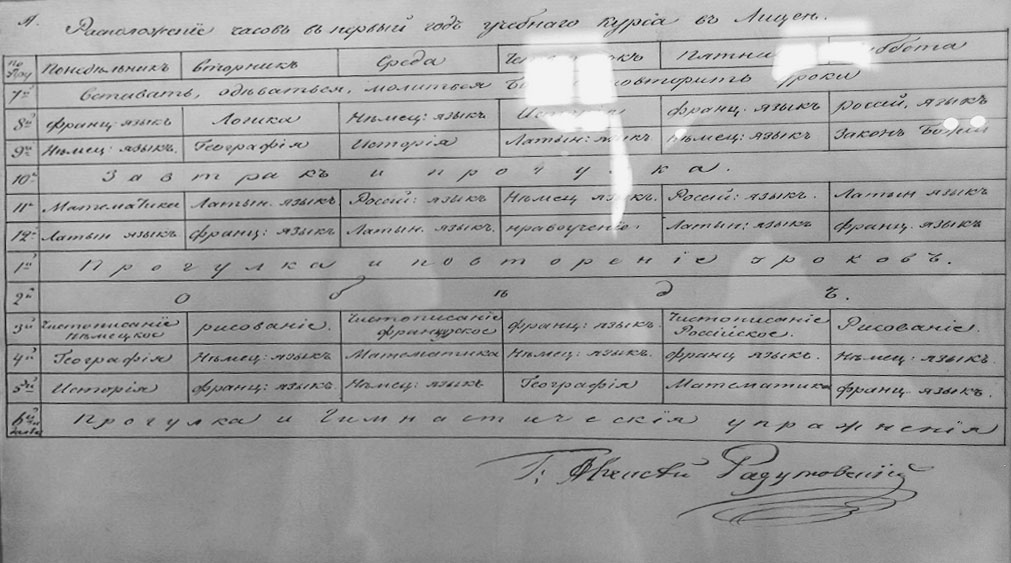 Расположенїе часовъ въ первый годъ учебнаго курса въ Лицеи.
Понедѣльникъ Вторникъ Среда Пятни ббота
7й Вставать, одѣваться, молиться повторить уроки
8й франц: языкъ Логика Нѣмец: языкъ Исторія франц: языкъ россій. языкъ
9й Нѣмец: языкъ. Географія Исторія Латын: языкъ нѣмец: языкъ Законъ Божій
10й Завтракъ и прогулка.
11й Математика Латын. языкъ Россій: языкъ Нѣмец языкъ. Россій: языкъ. Латын языкъ
12й Латын языкъ франц: языкъ Латын. языкъ. нравоученіе. Латин: языкъ франц. языкъ
1й Прогулка и повторенїе уроковъ.
2й Обѣдъ.
3й Чистописанїе нѣмецкое рисованїе. Чистописанїе французское франц: языкъ. Чистописанїе Россїйское. Рисованїе.
4й Географія Нѣмец: языкъ Математика Нѣмец: языкъ. франц языкъ. нѣмец: языкъ.
5й Исторія франц: языкъ Нѣмец: языкъ Географія Математика франц. языкъ.
6й Прогулка и Гимнастическія упражненія